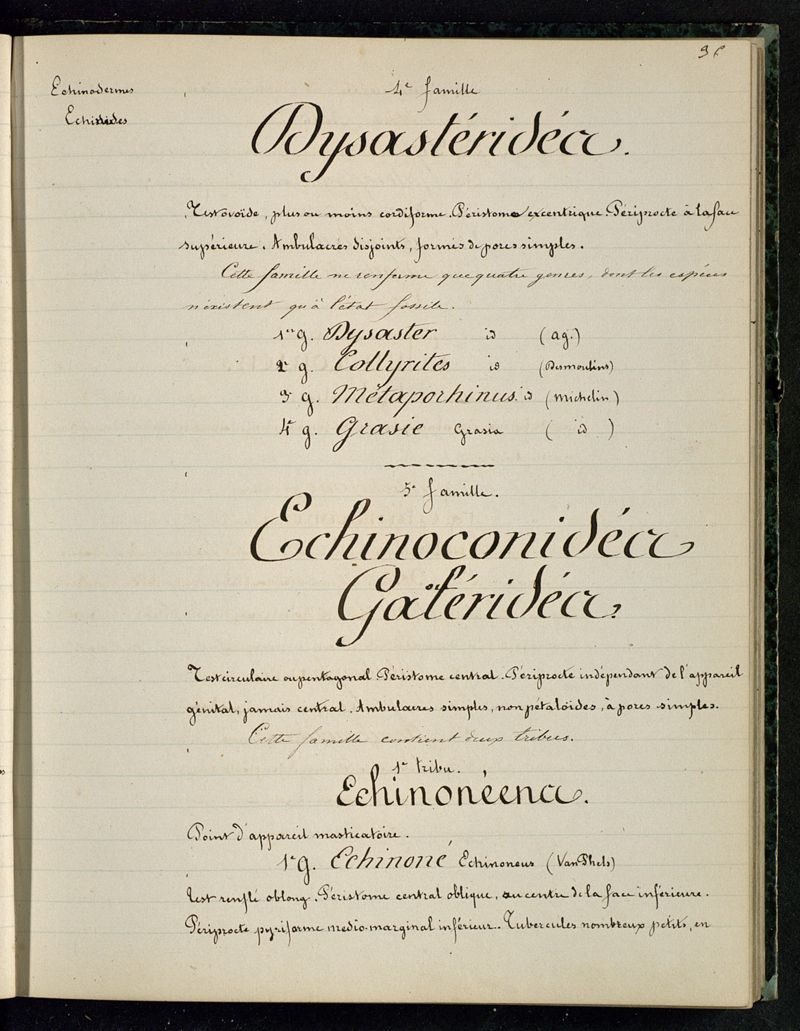 36
Echinodermes
Echinides
4e famille
Dysastéridéa.
Test ovoïde, plus ou moins cordiforme. Péristome excentrique. Périprocte à la face
supérieure. Ambulacres disjoints, formés de pores simples.
Cette famille ne renferme que quatre genres, dont les espèces
n'existent qu'à l'état fossile.
1er g. Dysaster id (ag.)
2e g. Collyrites id (Desmoulins)
3e g. Métaporhinus id (Michelin)
4e g. Grasie Grasia ( id )
5e famille.
Echinoconidéa
ou
Galéridéa.
Test circulaire ou pentagonal Péristome central. Périprocte indépendant de l'appareil
génital, jamais central. Ambulacres simples, non pétaloïdes, à pores simples.
Cette famille contient deux tribus.
1e tribu.
Echinonéena.
Point d'appareil masticatoire.
1er g. Echinoné Echinoneus (Van Phels)
Test renflé oblong. Péristome central oblique, au centre de la face inférieure.
Périprocte pyriforme medio-marginal inférieur. Tubercules nombreux petits, en